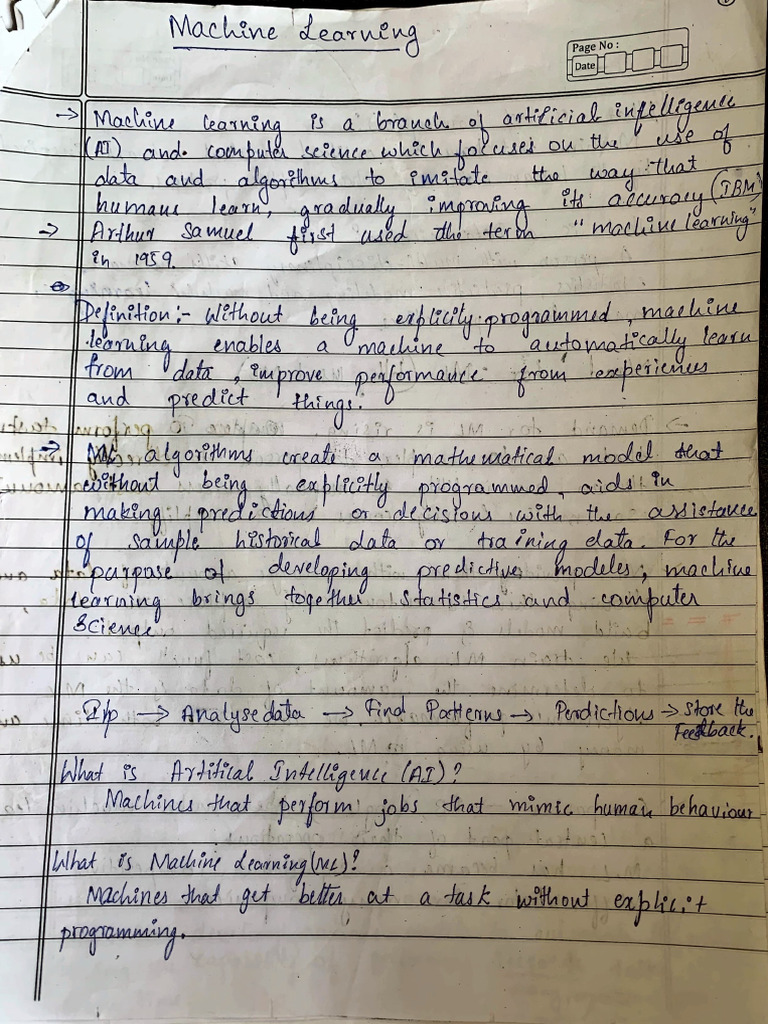 Machine Learning
Page No :
Date
→ Machine learning is a branch of artificial intelligence
(AI) and computer science which focuses on the use of
data and algorithms to imitate the way that
humans learn, gradually improving its accuracy (IBM)
→ Arthur Samuel first used the term "machine learning"
in 1959.
Definition:- Without being explicitly programmed, machine
learning enables a machine to automatically learn
from data, improve performance from experiences
and predict things.
→ ML algorithms create a mathematical model that
without being explicitly programmed, aids in
making predictions or decisions with the assistance
of sample historical data or training data. For the
purpose of developing predictive modeles, machine
learning brings together statistics and computer
Science
I/p → Analyse data → Find Patterns → Perdictions → Store the
Feedback.
What is Artifical Intelligence (AI)?
Machines that perform jobs that mimic human behaviour
What is Machine Learning (ML)?
Machines that get better at a task without explicit
programming.